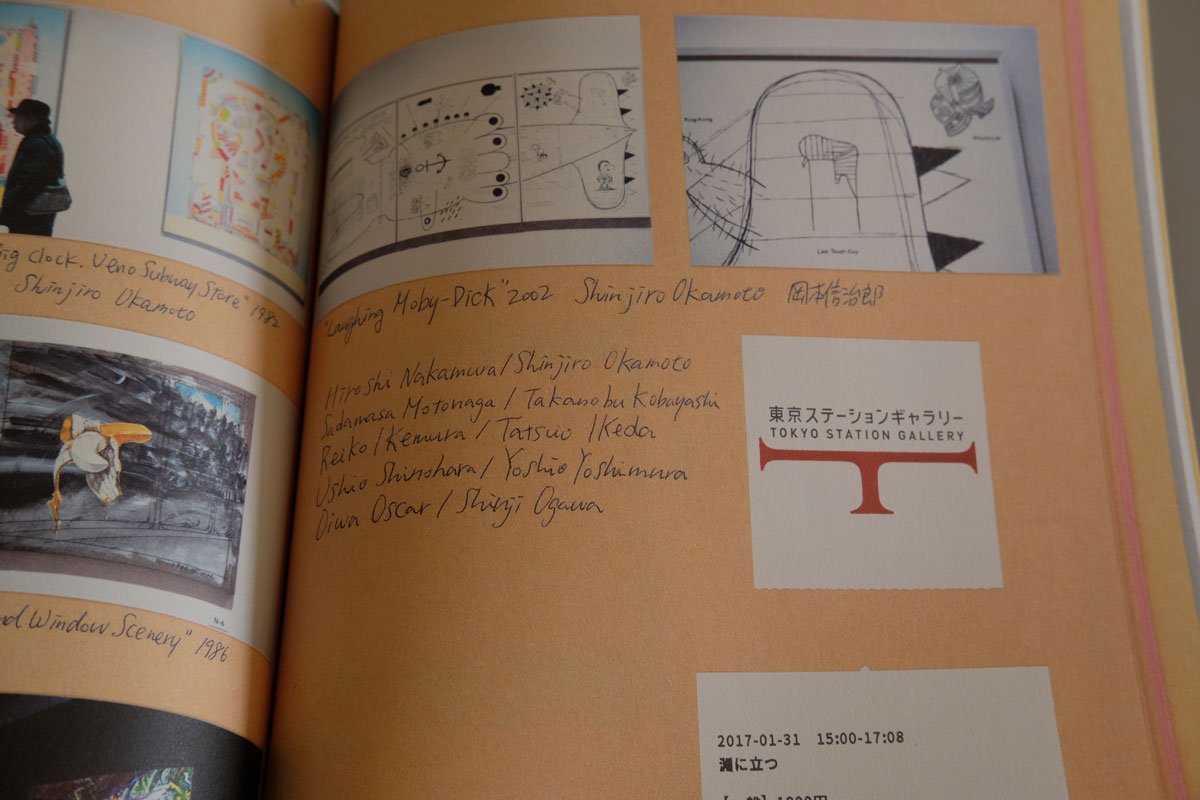 ig clock. Ueno Subway Store" 1982
Shinjiro Okamoto
N-6
nd Window Scenery" 1986
King Kong
Last Tooth Guy
"Laughing Moby-Dick" 2002 Shinjiro Okamoto 岡本信治郎
Hiroshi Nakamura / Shinjiro Okamoto
Sadamasa Motonaga / Takanobu Kobayashi
Reiko Ikemura / Tatsuo Ikeda
Ushio Shinohara / Yoshio Yoshimura
Oiwa Oscar / Shinji Ogawa
東京ステーションギャラリー
TOKYO STATION GALLERY
2017-01-31 15:00-17:08
淵に立つ